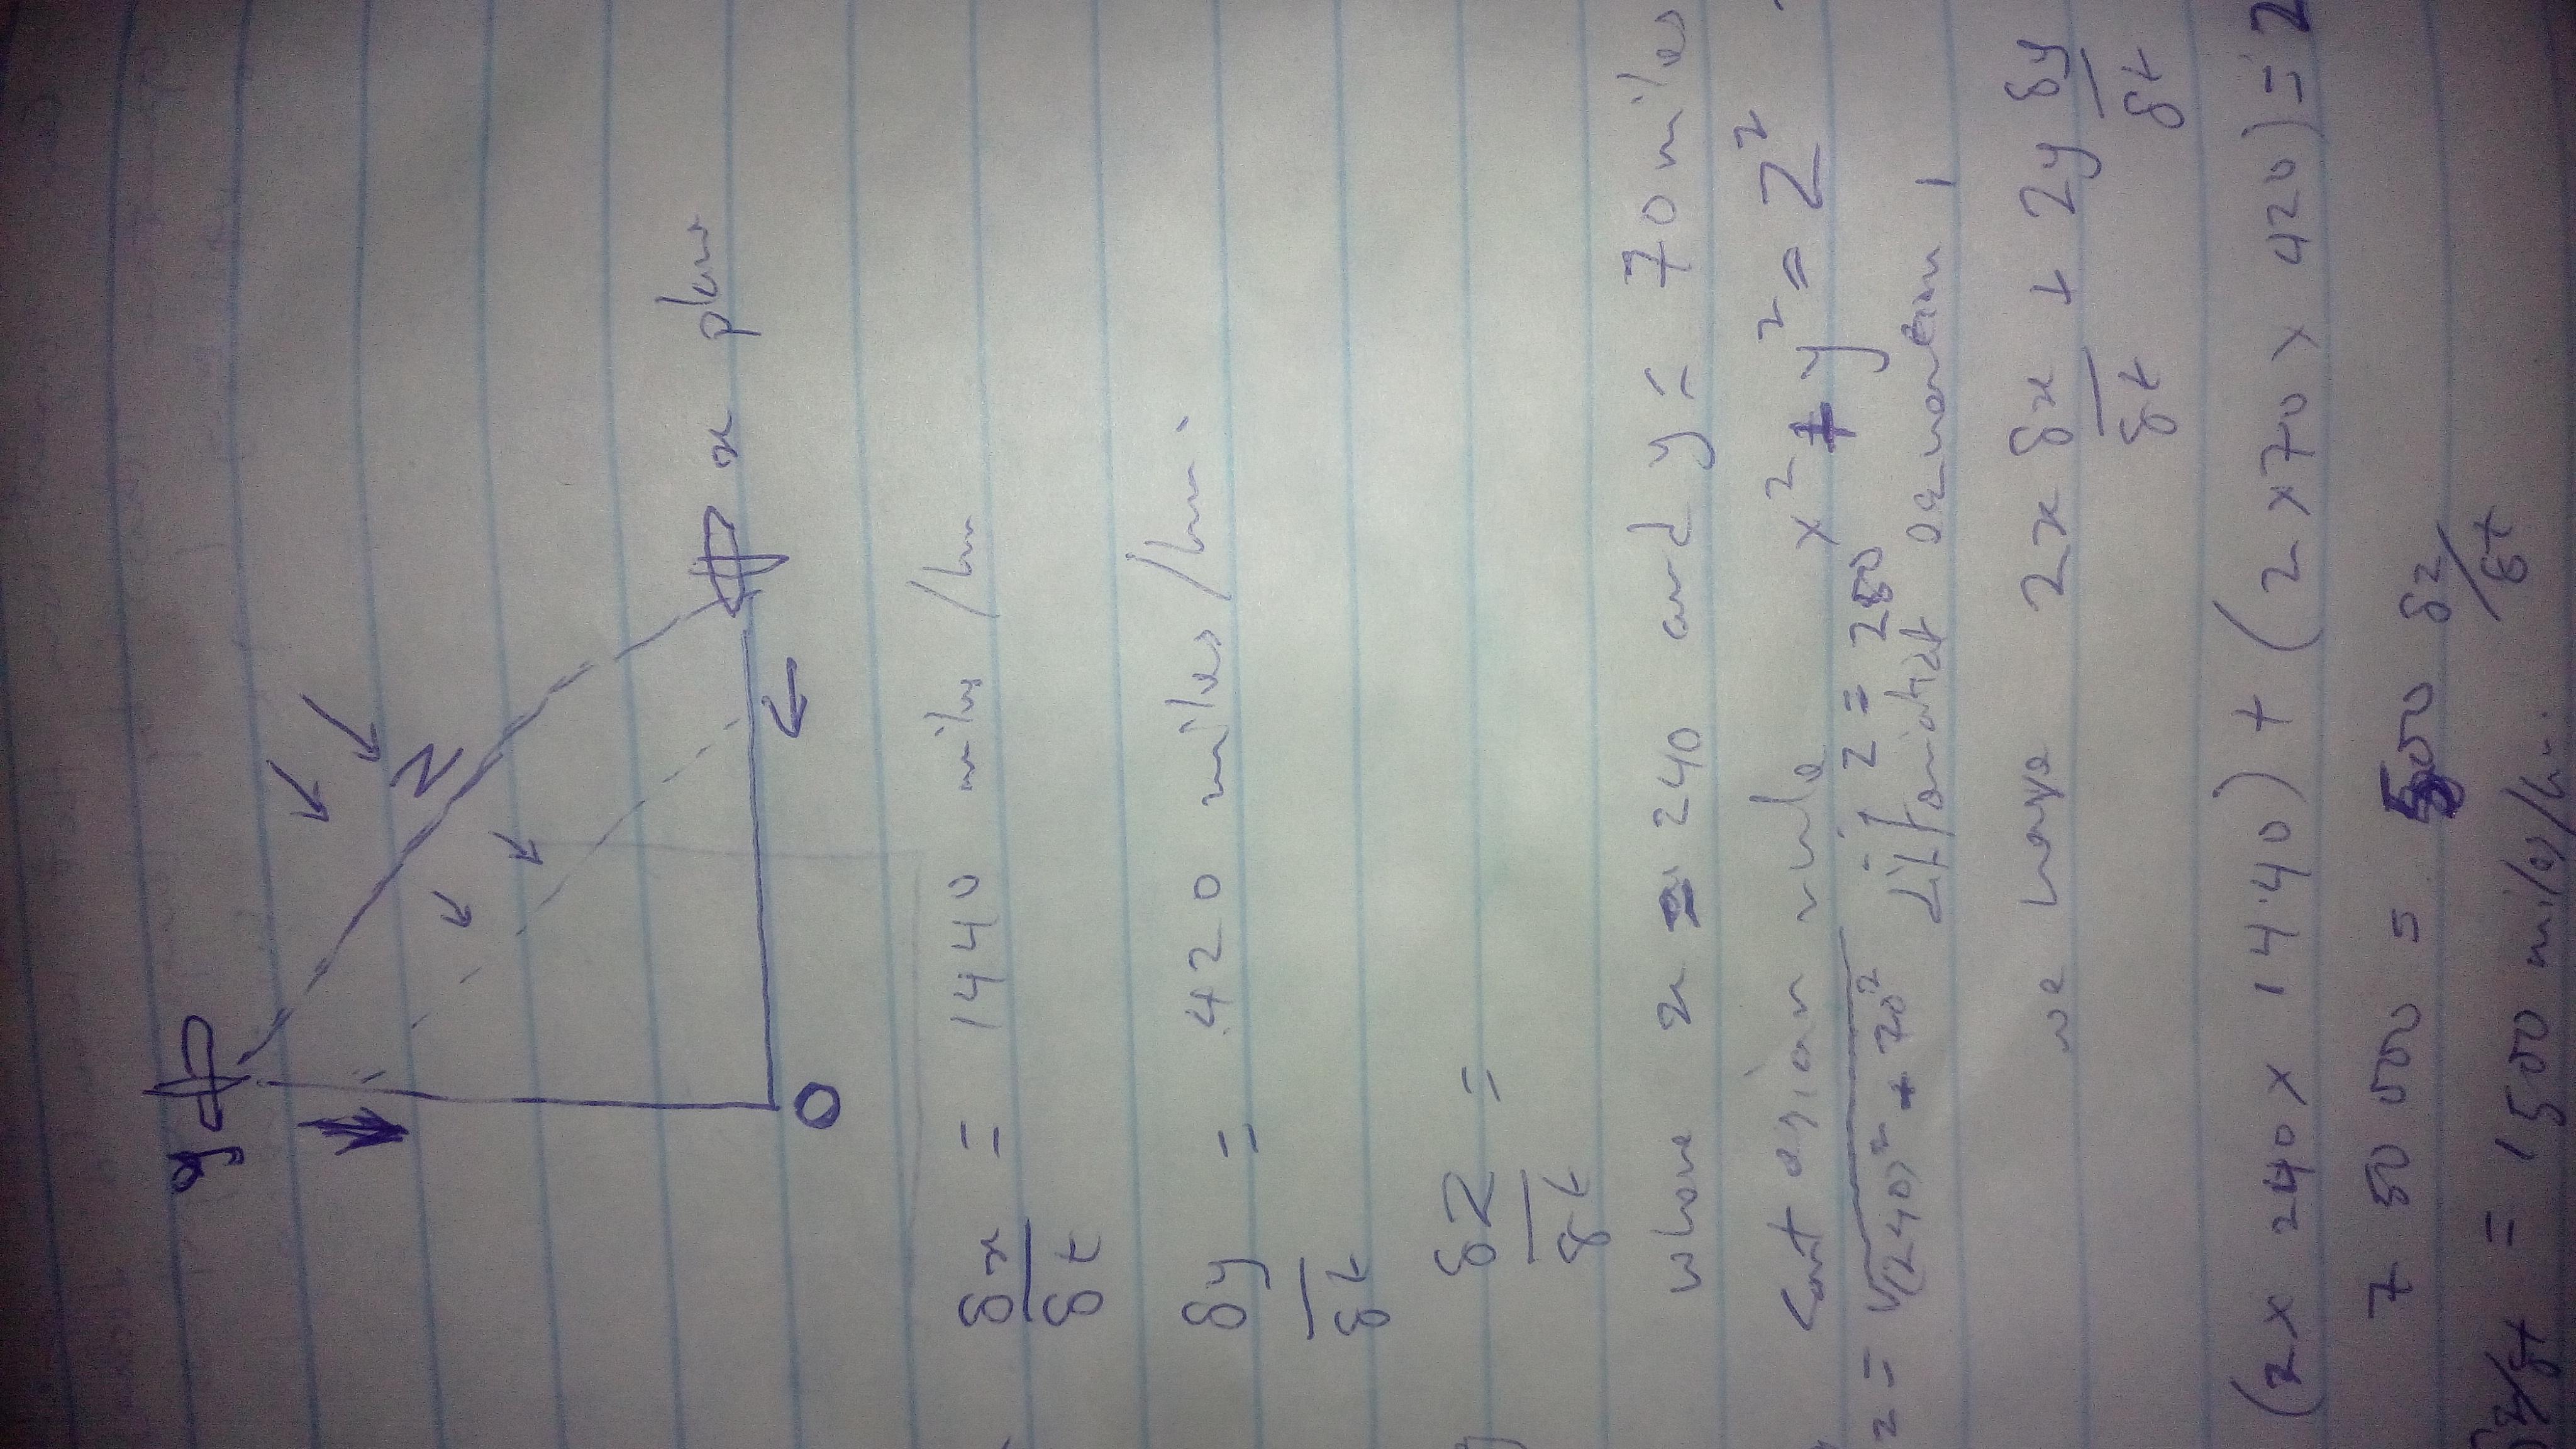 y
Z
x plan
O
δx/δt = 1440 miles/hr
δy/δt = 420 miles/hr.
δZ/δt =
where x = 240 and y = 70 miles
Cartesian rule x² + y² = Z²
z = √(240)² + 70² Z = 250
differentiat equation 1
we have 2x δx/δt + 2y δy/δt
(2 x 240 x 1440) + (2 x 70 x 420) = 2
750 000 = 500 δz/δt
δz/δt = 1500 miles/hr.